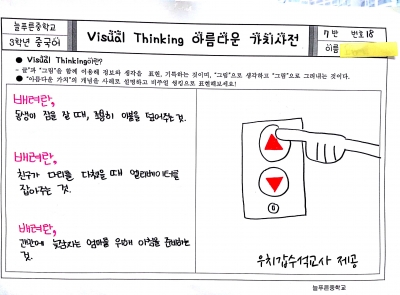 늘푸른중학교
3학년 중국어
Visual Thinking 아름다운 가치사전
7반 번호 18
이름
● Visual Thinking이란?
- 글과 "그림"을 함께 이용해 정보와 생각을 표현, 기록하는 것이며, "그림"으로 생각하고 "그림"으로 그려내는 것이다.
● "아름다운 가치"의 개념을 사례로 설명하고 비주얼 씽킹으로 표현해보세요!
배려란,
동생이 잠을 잘 때, 조용히 이불을 덮어주는 것.
배려란,
친구가 다리를 다쳤을 때 엘리베이터를
잡아주는 것.
배려란,
간만에 늦잠자는 엄마를 위해 아침을 준비하는
것.
우치갑수석교사 제공
늘푸른중학교